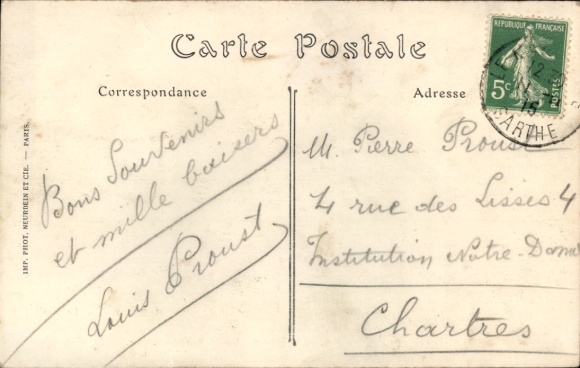 Carte Postale
Correspondance
Bons Souvenirs
et mille baisers
Louis Proust
IMP. PHOT. NEURDEIN ET CIE. — PARIS.
Adresse
REPUBLIQUE FRANÇAISE
5c
POSTES
12
15
SARTHE
M. Pierre Proust
4 rue des Lisses 4
Institution Notre-Dame
Chartres